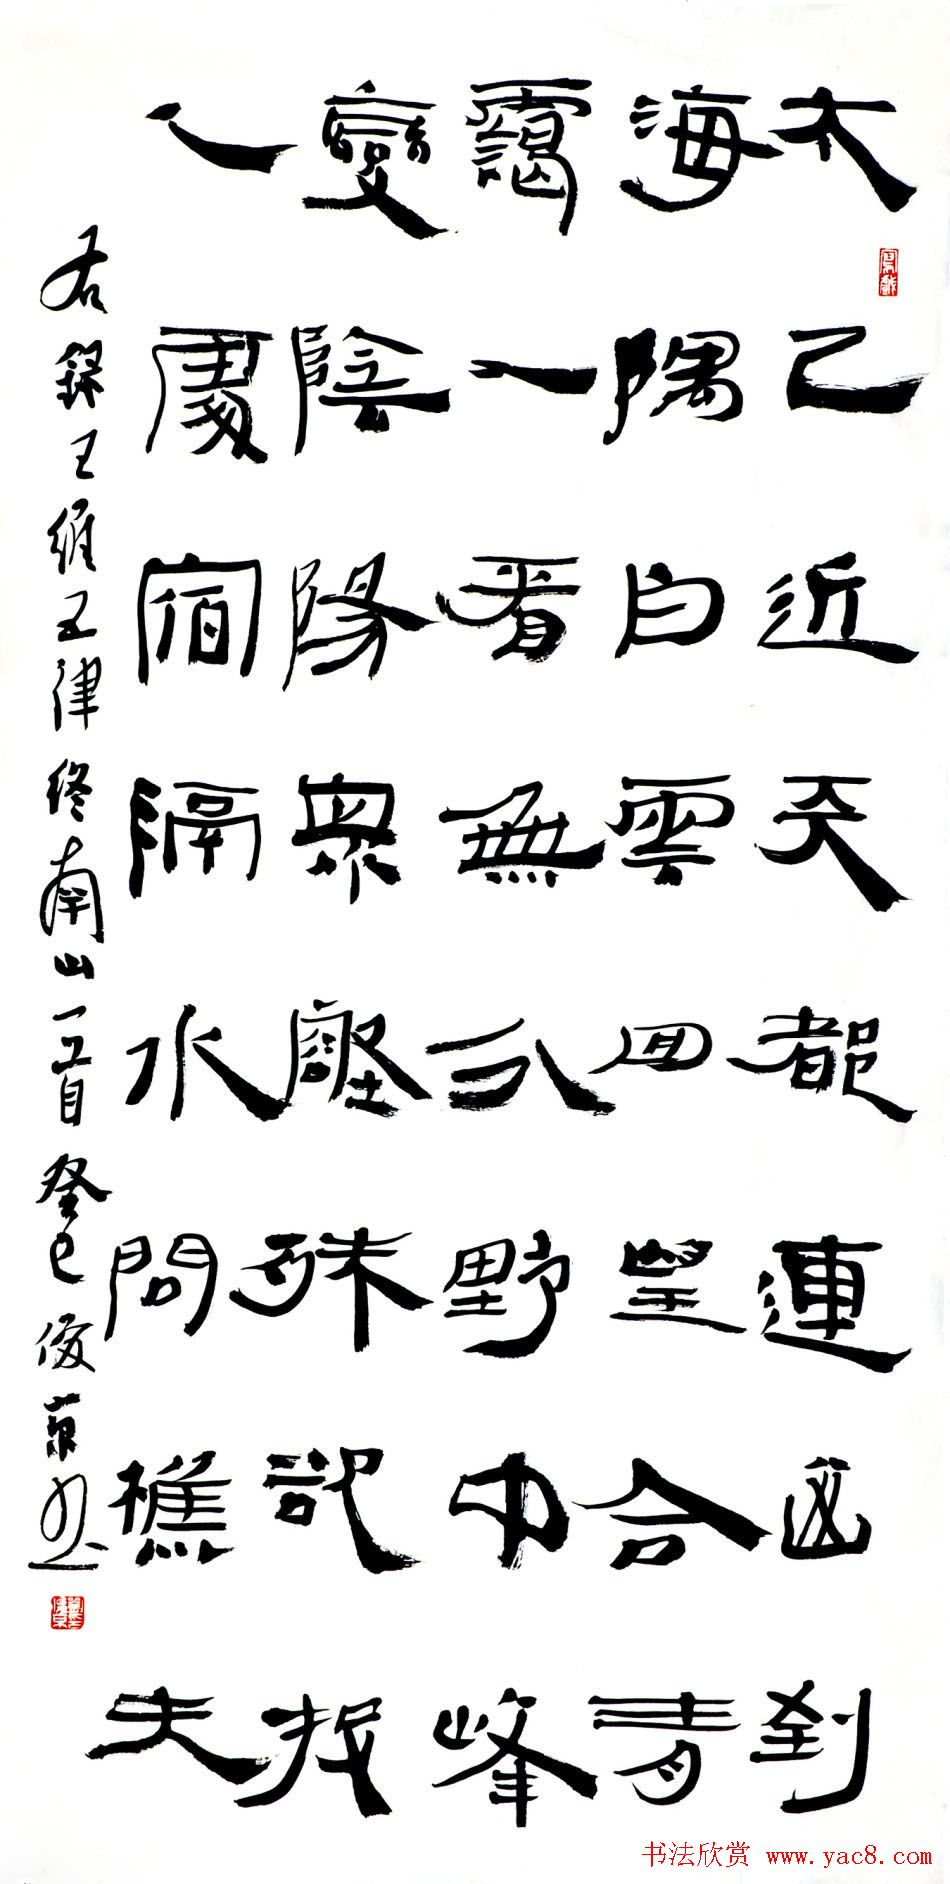 太乙近天都連山到
海隅白雲回望合青
靄入看無分野中峰
變陰陽眾壑殊欲投
人處宿隔水問樵夫
右錄王維五律終南山一首癸巳俊京書
书法欣赏 www.yac8.com